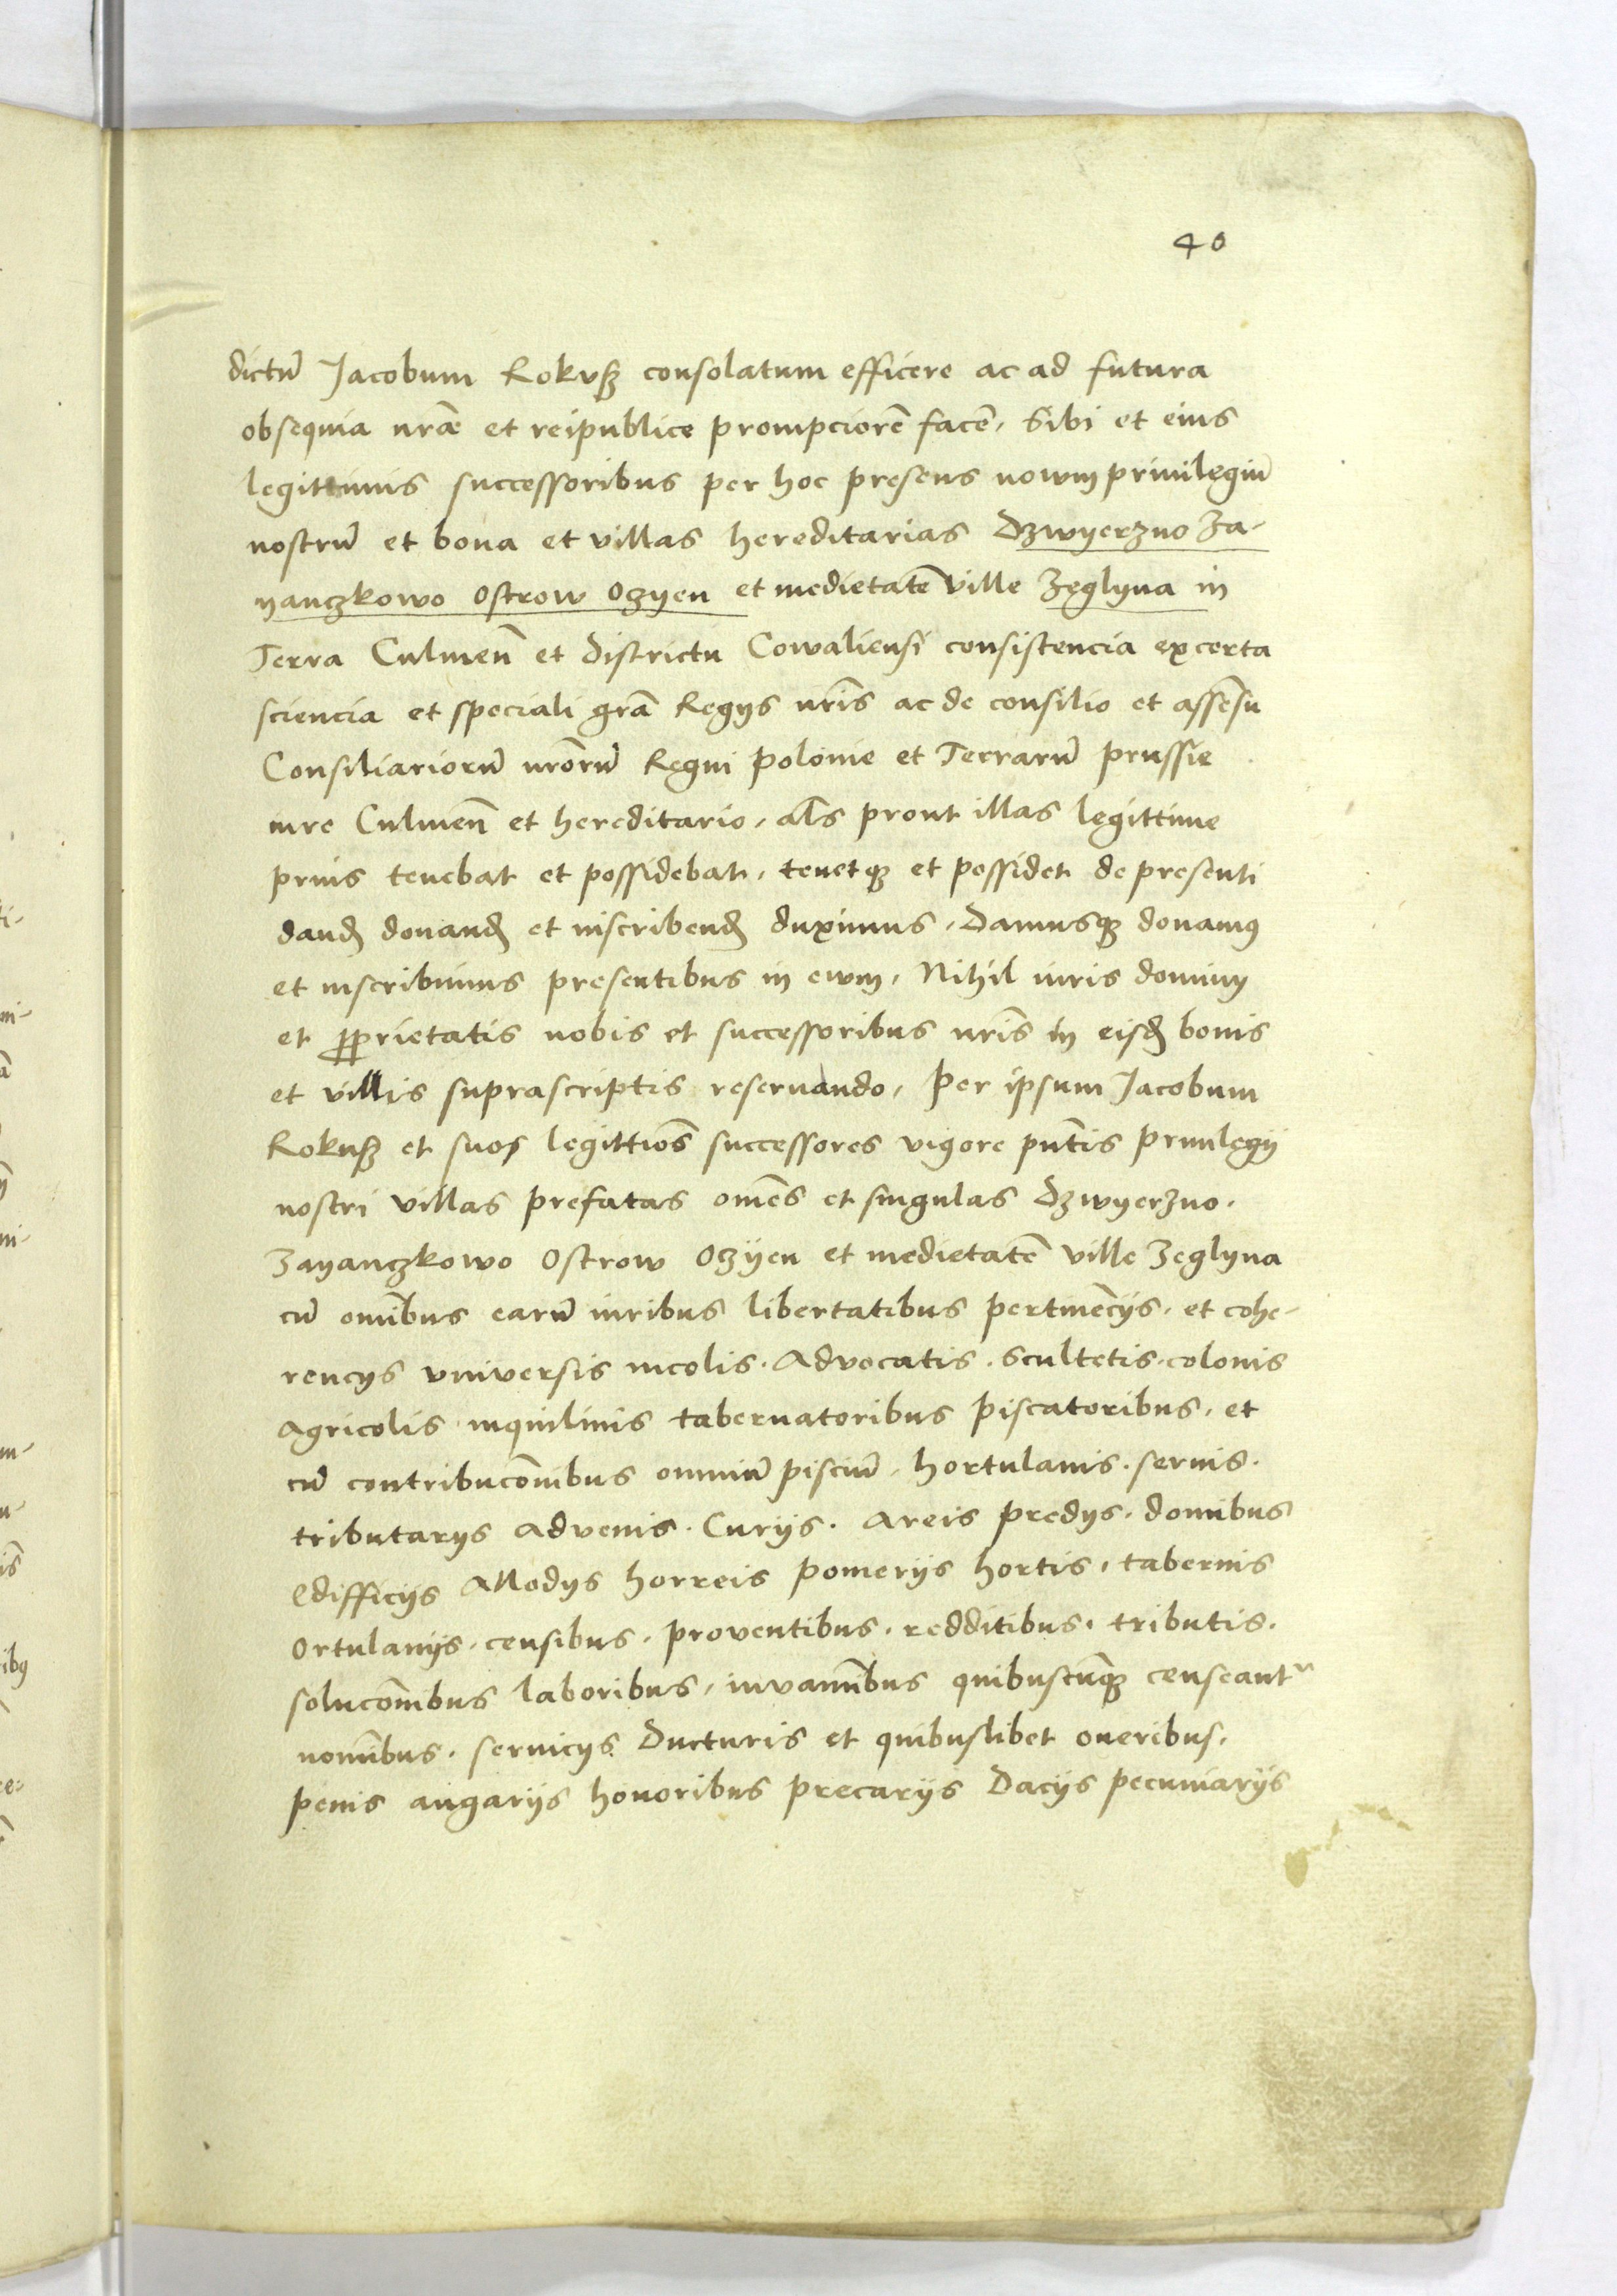 40
dictū Jacobum Rokuß consolatum efficere ac ad futura
obsequia nrāe et reipublice prompciorē facē, Sibi et eius
legittimis successoribus per hoc presens nowm priuilegiū
nostrū et bona et villas hereditarias Dzwyerzno Za-
yanczkowo Ostrow Ozyen et medietatē ville Zeglyna in
Terra Culmeñ et districtu Cowaliensi consistencia ex certa
sciencia et speciali grā Regys nrīs ac de consilio et assēsu
Consiliariorū nrōrū Regni polonie et Terrarū prussie
iure Culmeñ et hereditario, als prout illas legittime
prius tenebat et possidebat, tenetqꝫ et possidet de presenti
dand donand et inscribend duximus, Damusqꝫ donamꝰ
et inscribimus presentibus in ewm, Nihil iuris dominy
et ꝓprietatis nobis et successoribus nrīs in eisd bonis
et villis suprascriptis reseruando, per ipsum Jacobum
Rokuß et suos legittiōs successores vigore pñtis priuilegij
nostri villas prefatas omēs et singulas Dzwyerzno.
Zayanczkowo Ostrow Ozÿen et medietatē ville Zeglyna
cū omībus earū iuribus libertatibus pertinēcijs, et cohe-
rencijs vniuersis incolis. Advocatis. Scultetis. colonis
Agricolis inquilinis tabernatoribus piscatoribus, et
cū contribucōnibus omniū pisciū, hortulanis. seruis.
tributarys Advenis. Curijs. Areis predys. domibus
Edifficijs Allodys horreis pomerijs hortis, tabernis
Ortulanijs. censibus. proventibus. redditibus. tributis.
solucōnibus laboribus, iuvamībus quibuscūqꝫ censeantʳ
nomībus. seruicijs Ducturis et quibuslibet oneribus.
penis angarijs honoribus precarijs Dacijs pecuniarijs